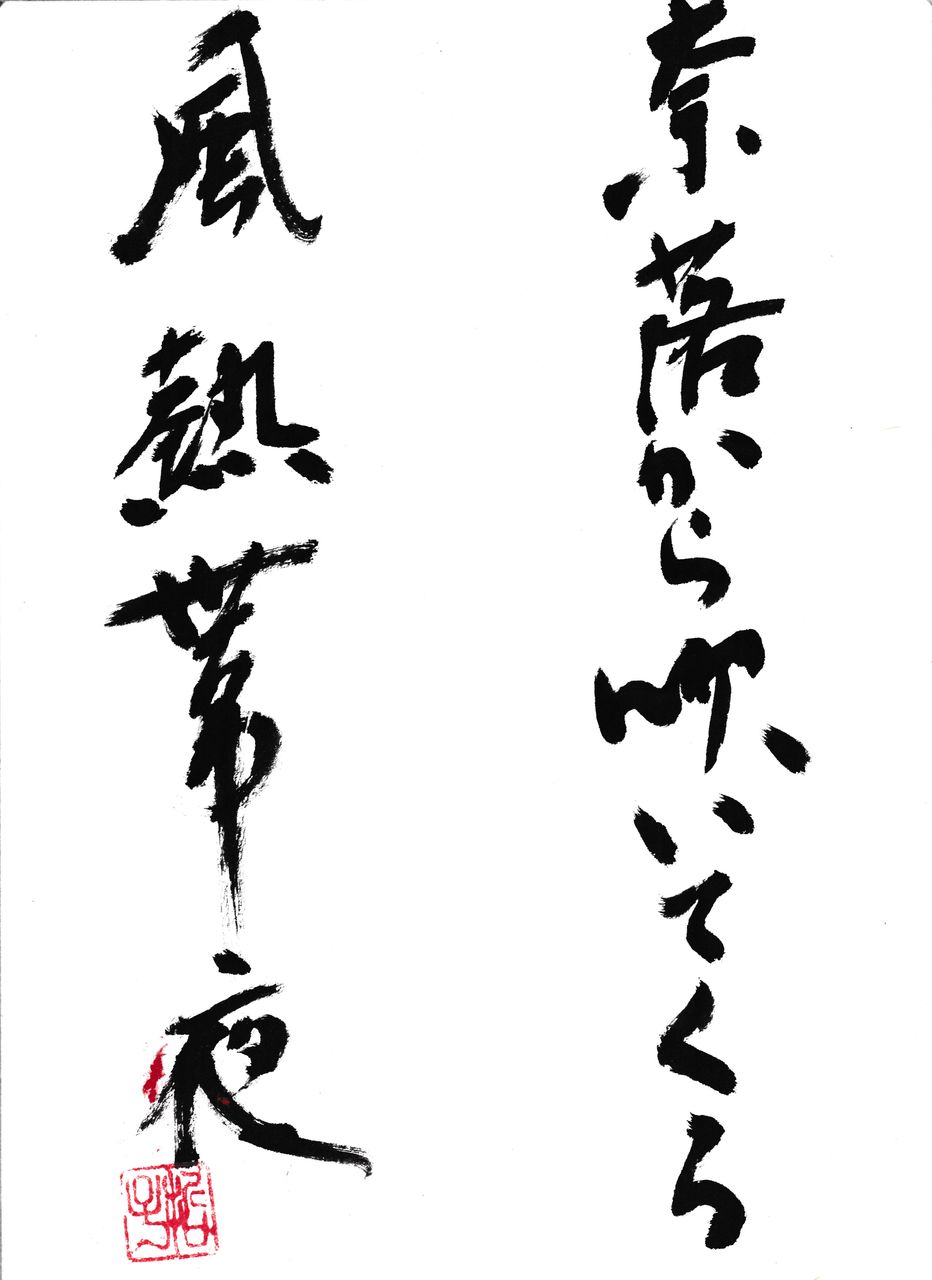 奈落から吹いてくる
風熱帯夜